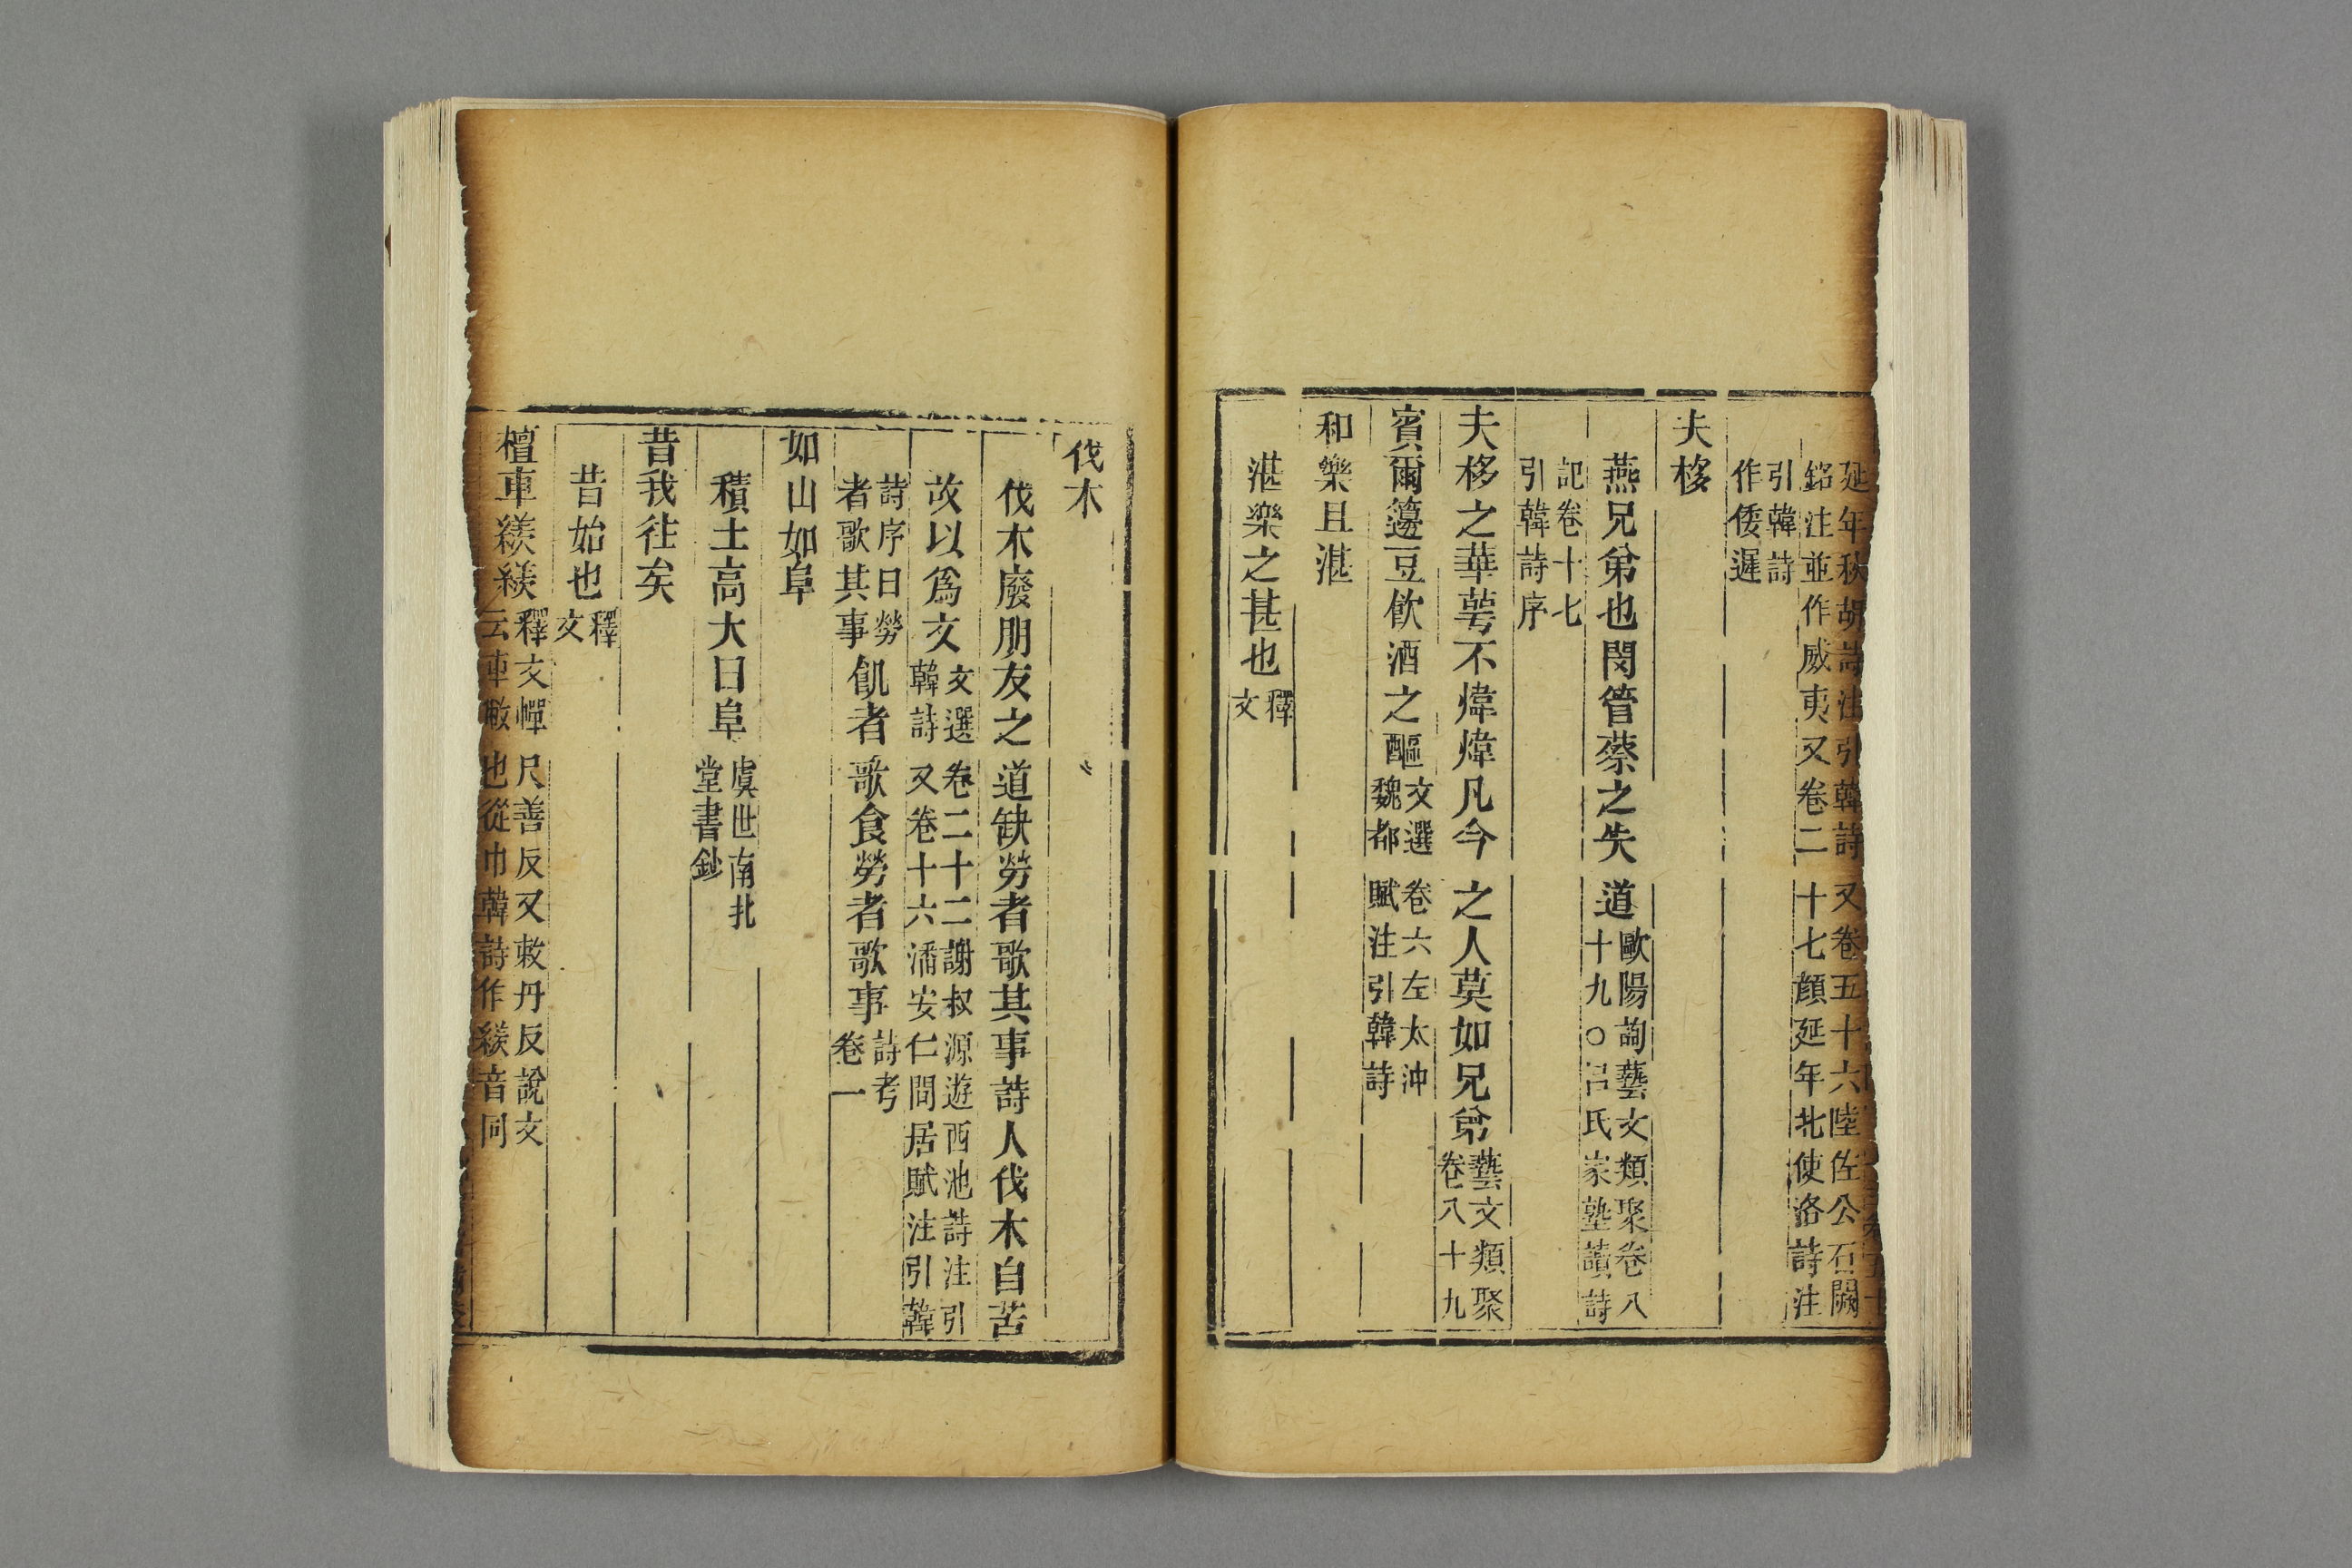 延年秋胡詩注引韓詩又卷五十六陸佐公石闕
銘注並作威夷又卷二十七顔延年北使洛詩注
引韓詩
作倭遲
夫栘
燕兄弟也閔管蔡之失道歐陽詢藝文類聚卷八
十九○呂氏家塾讀詩
記卷十七
引韓詩序
夫栘之華萼不煒煒凡今之人莫如兄弟藝文類聚
卷八十九
賓爾籩豆飲酒之醧文選卷六左太沖
魏都賦注引韓詩
和樂且湛
湛樂之甚也釋
文
伐木
伐木廢朋友之道缺勞者歌其事詩人伐木自苦
故以爲文文選卷二十二謝叔源遊西池詩注引
韓詩又卷十六潘安仁間居賦注引韓
詩序曰勞
者歌其事飢者歌食勞者歌事詩考
卷一
如山如阜
積土高大曰阜虞世南北
堂書鈔
昔我往矣
昔始也釋
文
檀車緂緂釋文幝尺善反又敕丹反說文
云車敝也從巾韓詩作緂音同